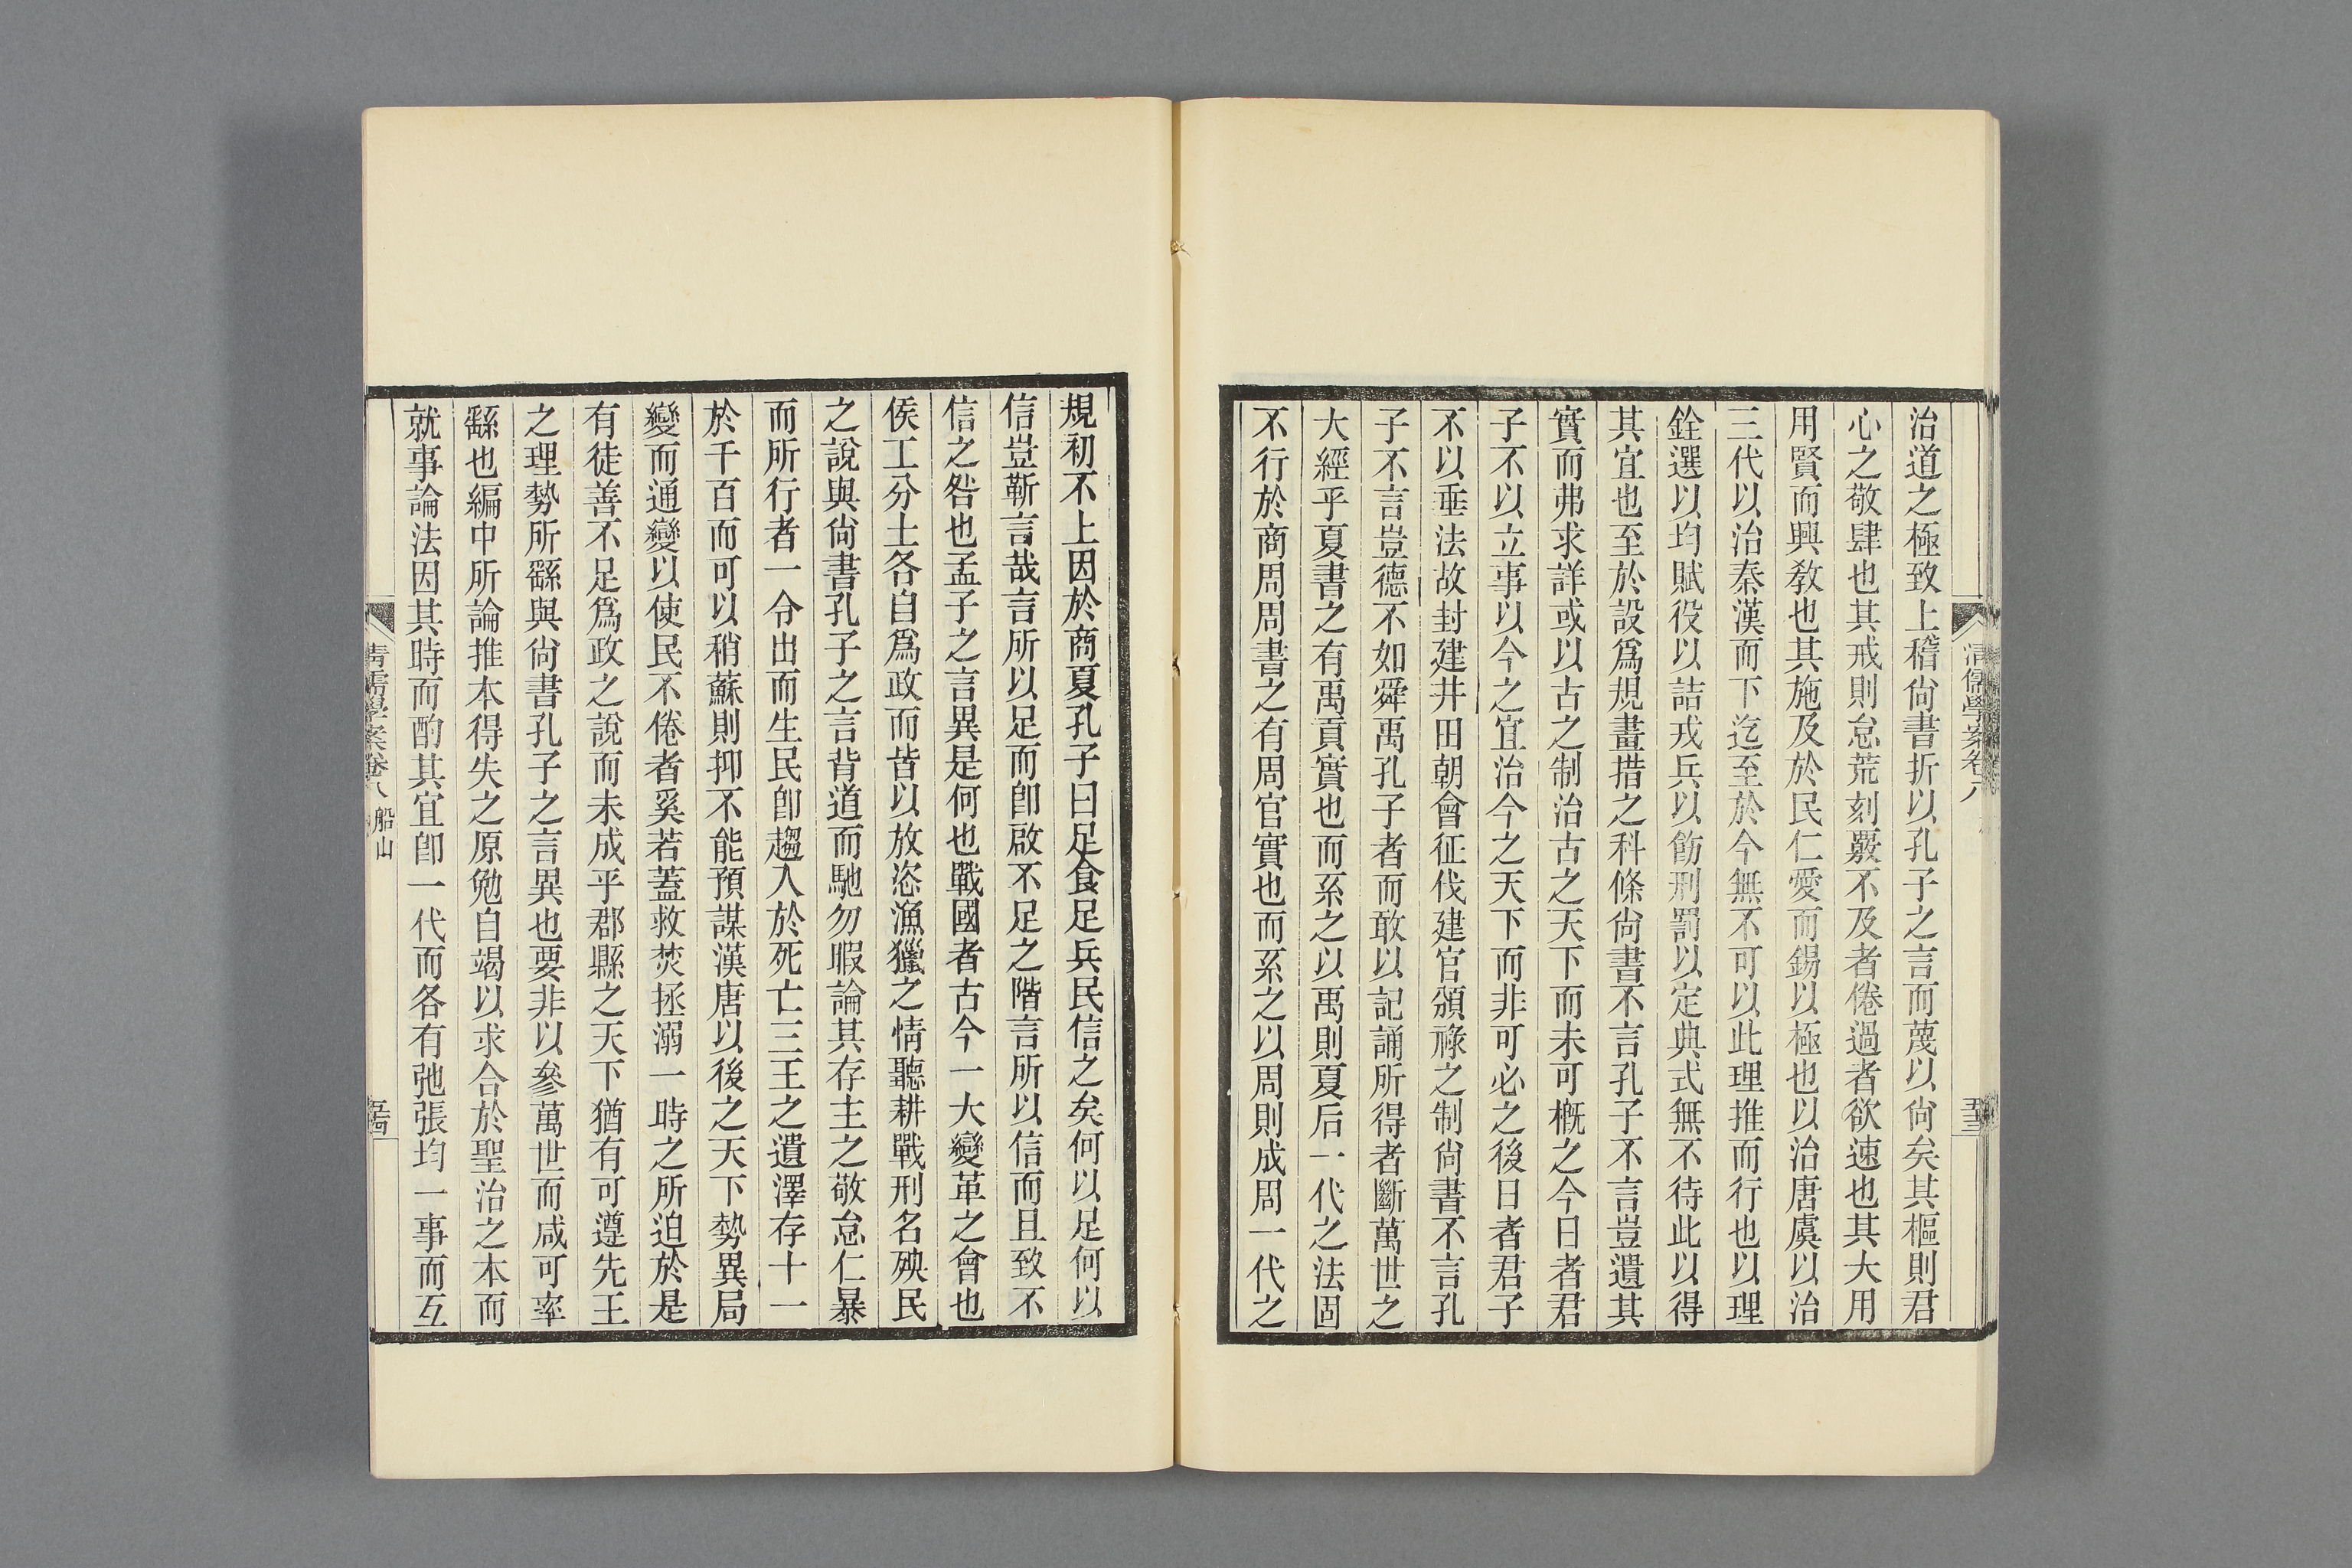 治道之極致上稽尙書折以孔子之言而蔑以尙矣其樞則君
心之敬肆也其戒則怠荒刻覈不及者倦過者欲速也其大用
用賢而興敎也其施及於民仁愛而錫以極也以治唐虞以治
三代以治秦漢而下迄至於今無不可以此理推而行也以理
銓選以均賦役以詰戎兵以飭刑罰以定典式無不待此以得
其宜也至於設爲規畫措之科條尙書不言孔子不言豈遺其
實而弗求詳或以古之制治古之天下而未可槪之今日者君
子不以立事以今之宜治今之天下而非可必之後日者君子
不以垂法故封建井田朝會征伐建官頒祿之制尙書不言孔
子不言豈德不如舜禹孔子者而敢以記誦所得者斷萬世之
大經乎夏書之有禹貢實也而系之以禹則夏后一代之法固
不行於商周周書之有周官實也而系之以周則成周一代之
清儒學案卷八
五十三
規初不上因於商夏孔子曰足食足兵民信之矣何以足何以
信豈靳言哉言所以足而卽啟不足之階言所以信而且致不
信之咎也孟子之言異是何也戰國者古今一大變革之會也
侯工分土各自爲政而皆以放恣漁獵之情聽耕戰刑名殃民
之說與尙書孔子之言背道而馳勿暇論其存主之敬怠仁暴
而所行者一令出而生民卽趨入於死亡三王之遺澤存十一
於千百而可以稍蘇則抑不能預謀漢唐以後之天下勢異局
變而通變以使民不倦者奚若蓋救焚拯溺一時之所迫於是
有徒善不足爲政之說而未成乎郡縣之天下猶有可遵先王
之理勢所繇與尙書孔子之言異也要非以參萬世而咸可率
繇也編中所論推本得失之原勉自竭以求合於聖治之本而
就事論法因其時而酌其宜卽一代而各有弛張均一事而互
清儒學案卷八 船山
五十四